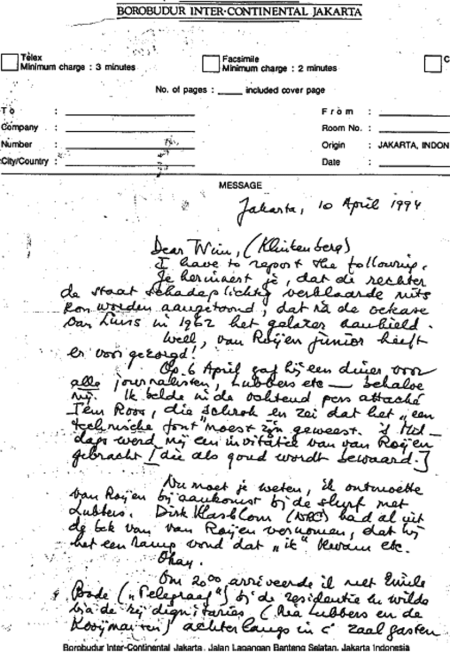 BOROBUDUR INTER-CONTINENTAL JAKARTA
Telex
Minimum charge : 3 minutes
Facsimile
Minimum charge : 2 minutes
C
No. of pages : included cover page
To :
From :
Company :
Room No. :
Number :
Origin : JAKARTA, INDON
City/Country :
Date :
MESSAGE
Jakarta, 10 April 1994
Dear Wim, (Klinkenberg)
I have to report the following.
Je herinnert je, dat de rechter
de staat schadeplichtig verklaarde mits
kon worden aangetoond, dat na de
van Luns in 1962 het aanhield.
Well, van Roijen junior heeft
er voor gezorgd!
Op 6 April gaf hij een diner voor
alle journalisten, Lubbers etc — behalve
mij. Ik belde in de ochtend pers attaché
Roos, die schrok en zei dat het "een
technische fout" moest zijn geweest. 's Mid-
dags werd mij een invitatie van van Roijen
gebracht [die als goud wordt bewaard.]
Nu moet je weten, ik ontmoette
van Roijen bij aankomst bij de slurf met
Lubbers. Dirk (NRC) had al uit
de bek van van Roijen vernomen, dat hij
het een ramp vond dat "ik" kwam etc.
Okay.
Om 20.00 arriveerde ik met Emile
Bode ("Telegraaf") bij de residentie in wilde
via de dignitaries (Ria Lubbers en de
Kooijmansen) achterlangs in 's zaal gasten
Borobudur Inter-Continental Jakarta, Jalan Lapangan Banteng Selatan, Jakarta Indonesia